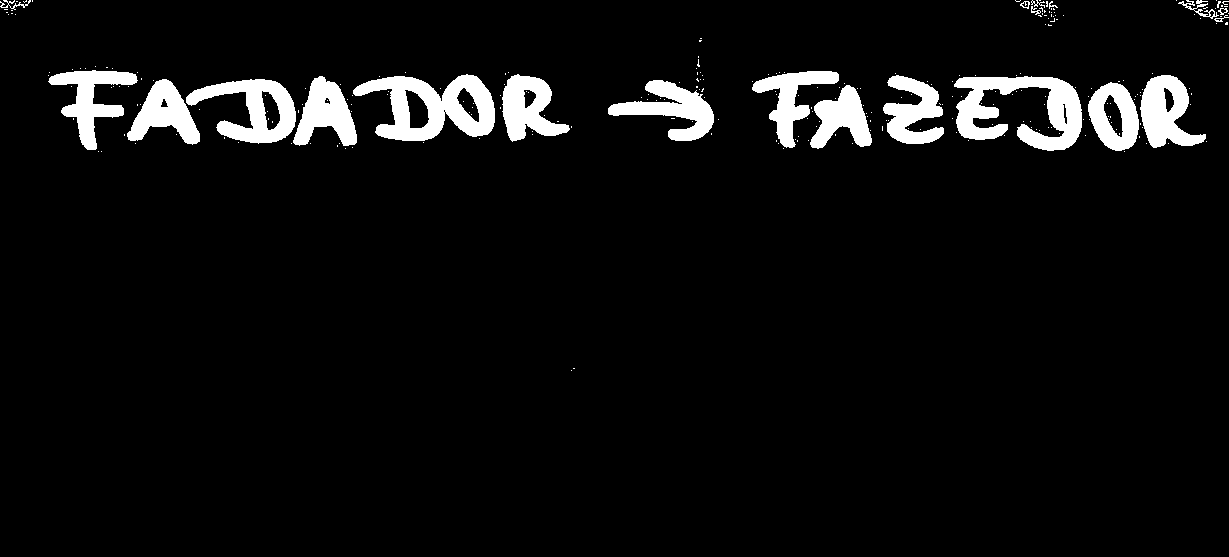 FADADOR → FAZEDOR